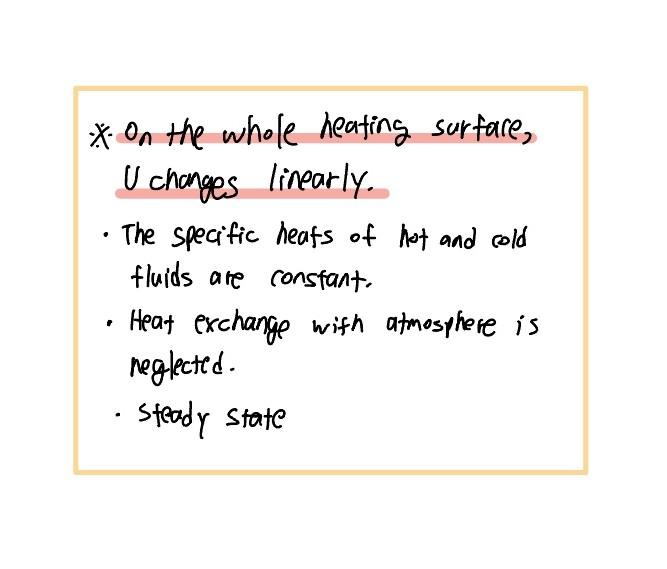 ※ On the whole heating surface,
U changes linearly.
· The specific heats of hot and cold
fluids are constant.
· Heat exchange with atmosphere is
neglected.
· Steady state